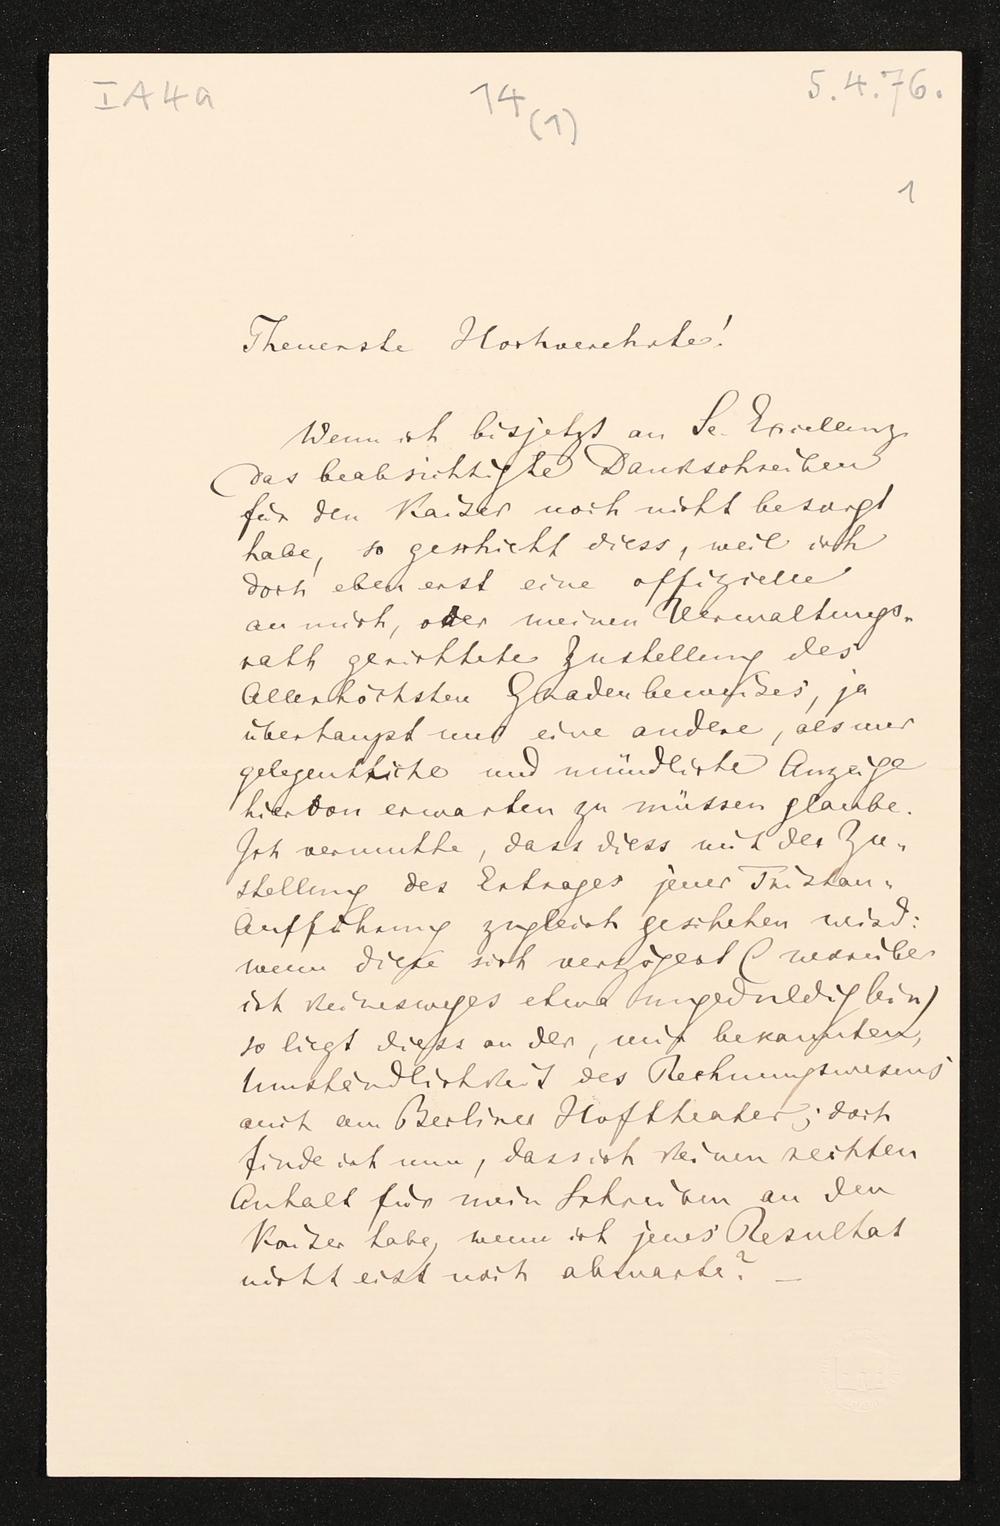 I A 4 a
14
(1)
5.4.76.
1
Theuerste Hochverehrte!
Wenn ich bisjetzt an Se. Excellenz
das beabsichtigte Dankschreiben
für den Kaiser noch nicht besorgt
habe, so geschieht diess, weil ich
doch eben erst eine offizielle
an mich, oder meinen Verwaltungs-
rath gerichtete Zustellung des
Allerhöchsten Gnadenbeweises, ja
überhaupt nur eine andere, als nur
gelegentliche und mündliche Anzeige
hiervon erwarten zu müssen glaube.
Ich vermuthe, dass diess mit der Zu-
stellung des Ertrages jener Tristan-
Aufführung zugleich geschehen wird:
wenn diese sich verzögert (worüber
ich keinesweges etwa ungeduldig bin)
so liegt diess an der, mir bekannten,
Umständlichkeit des Rechnungswesens
auch am Berliner Hoftheater; doch
finde ich nun, dass ich keinen rechten
Anhalt für mein Schreiben an den
Kaiser habe, wenn ich jenes Resultat
nicht erst noch abwarte? —